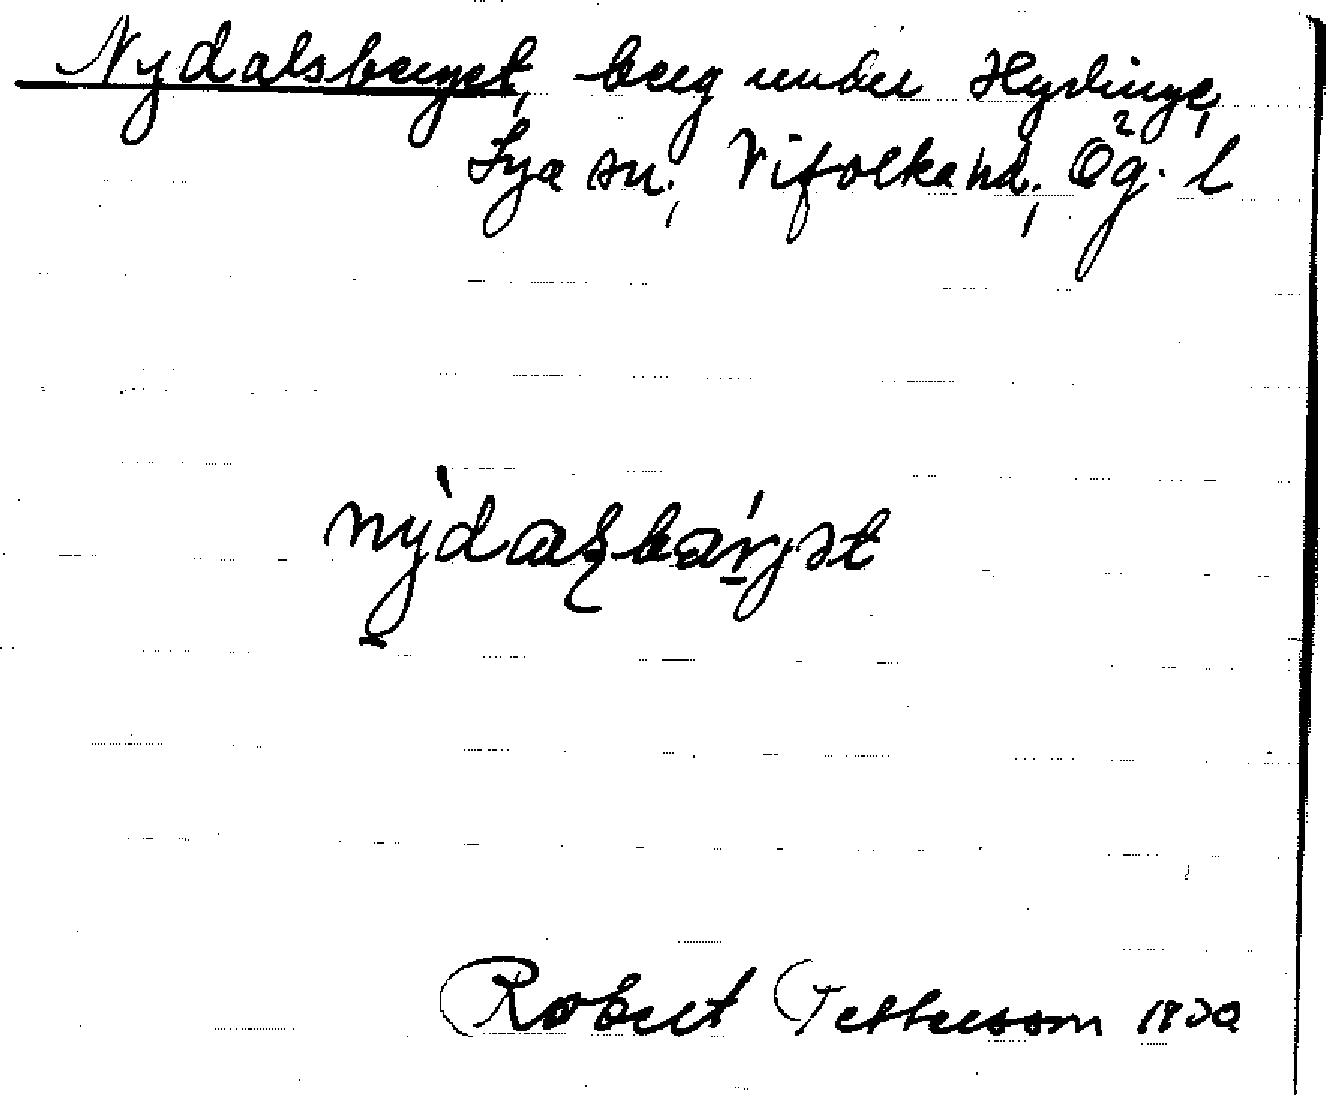 Nydalsberget, berg under Hydinge,
Sya sn, Vifolka hd, Ög. l
nỳdaꞎbárgət
Robert Pettersson 1930